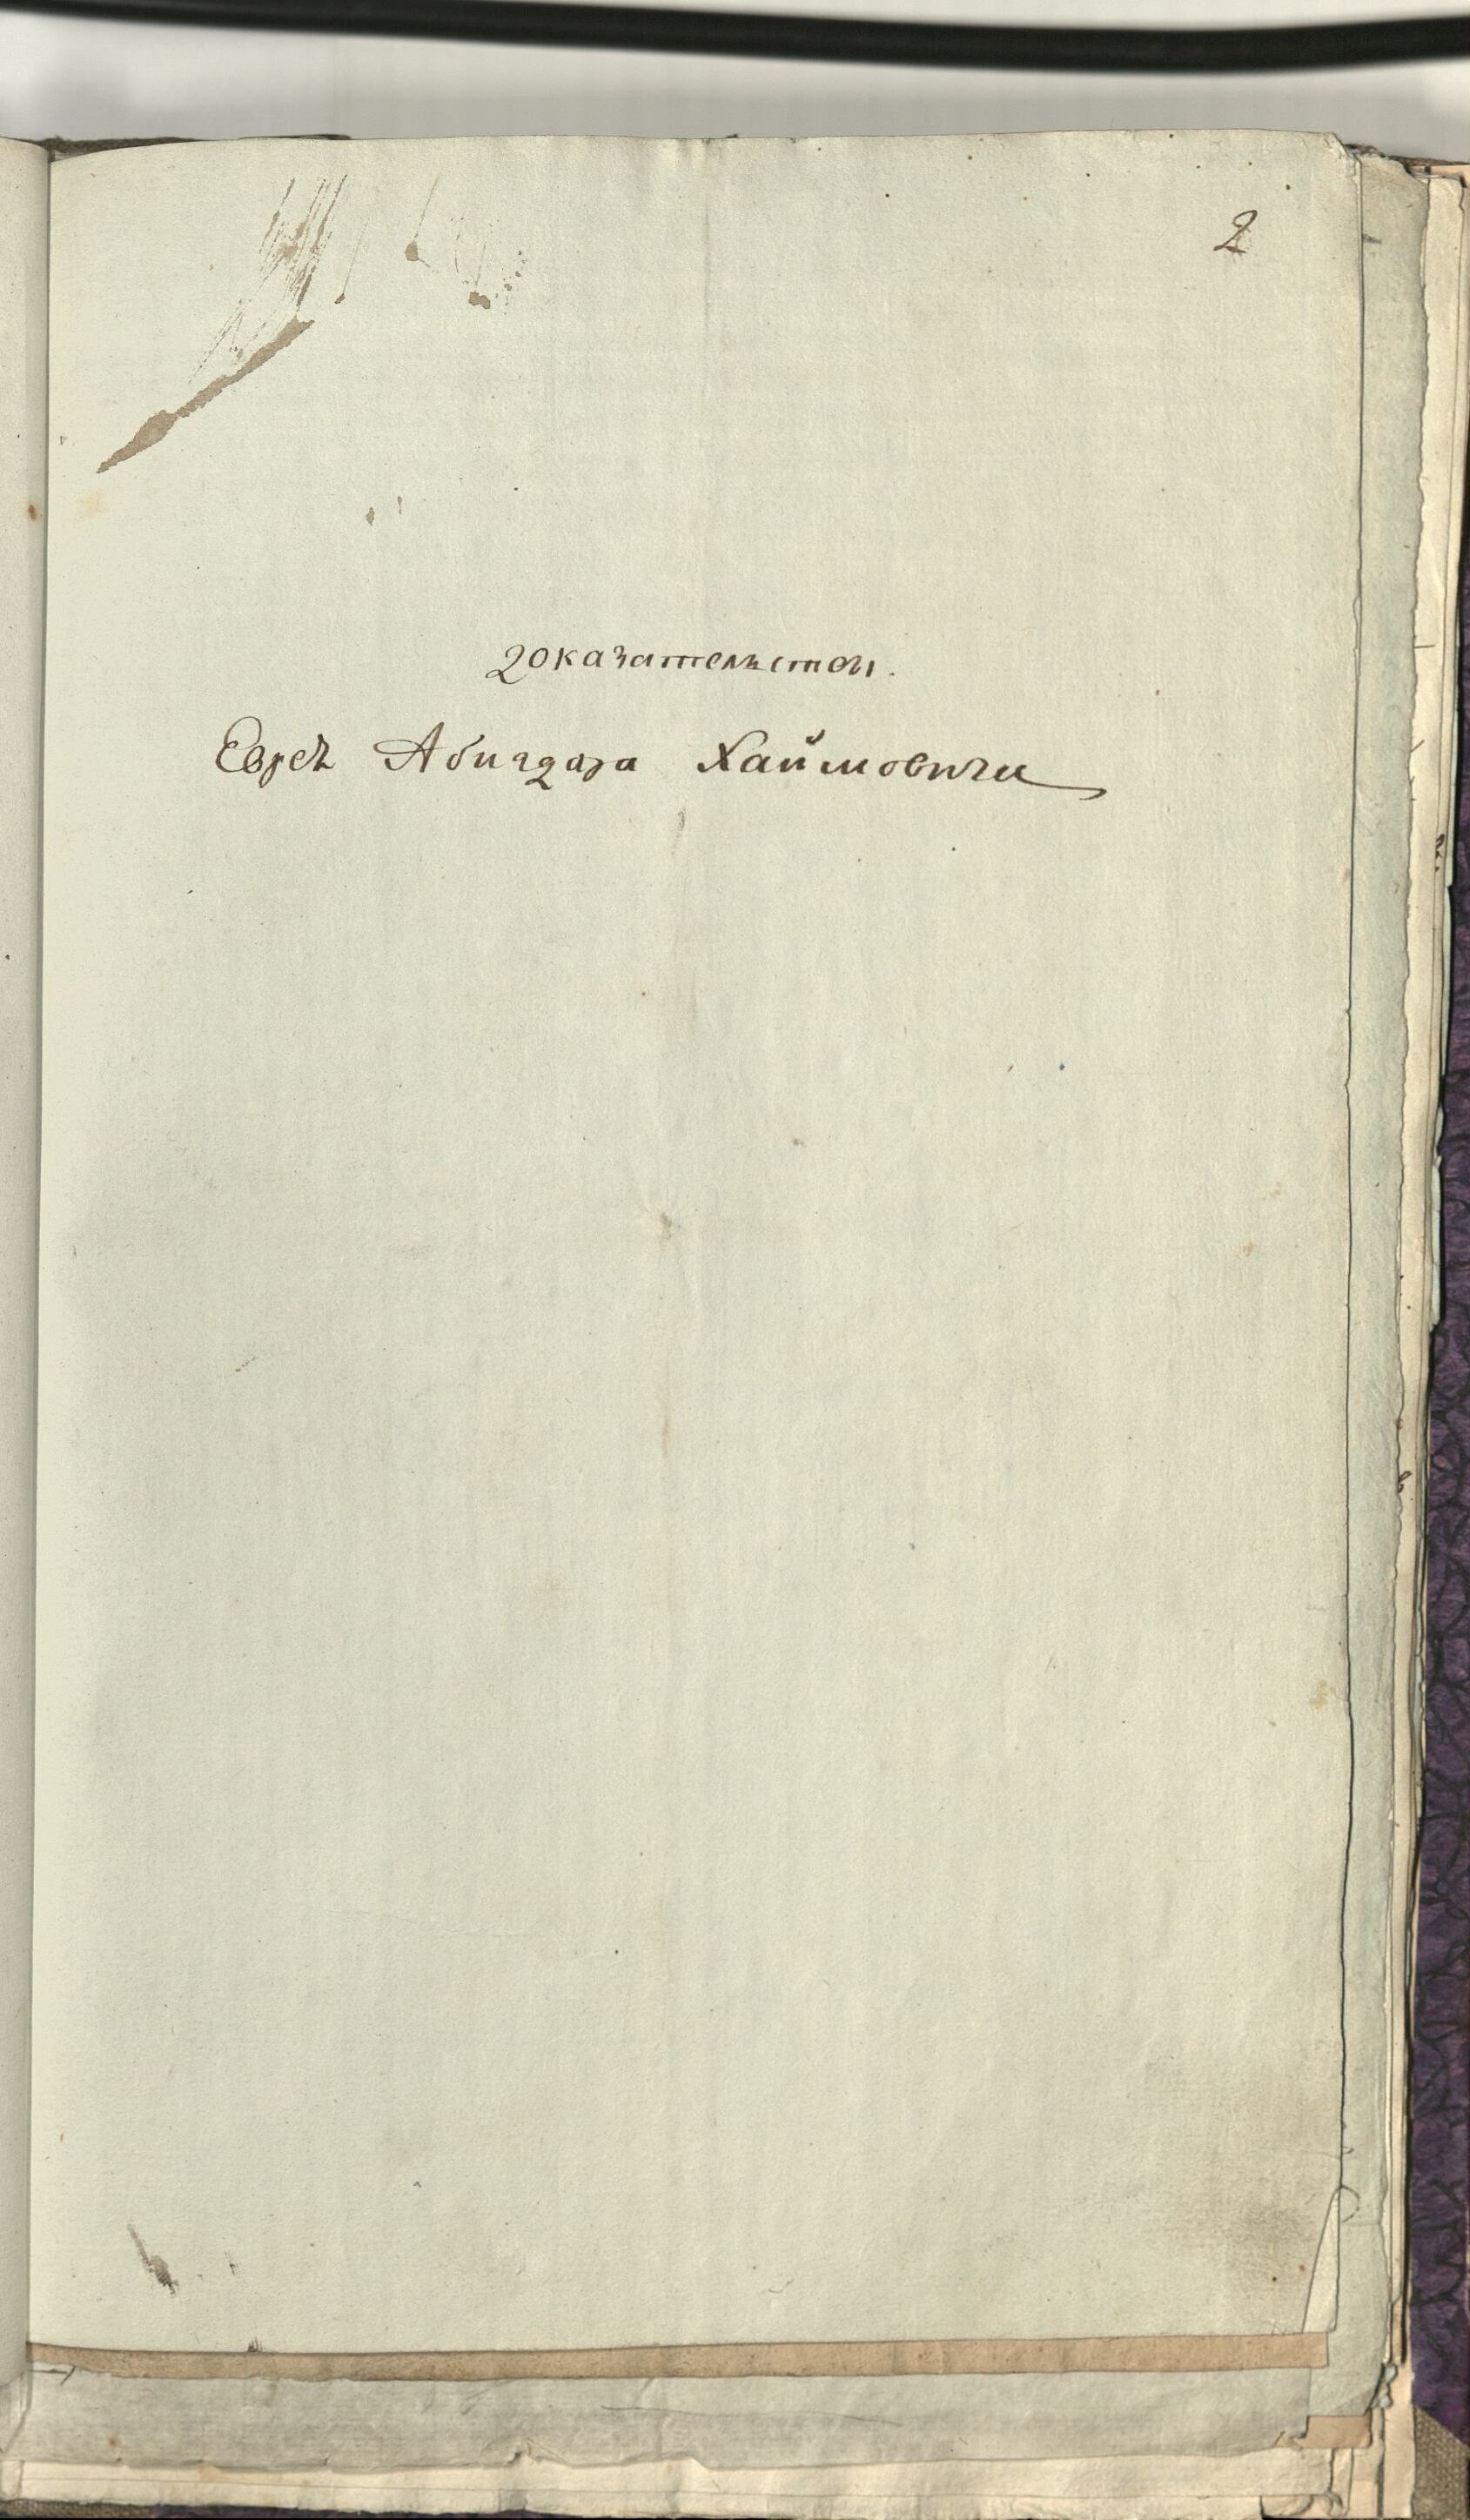 2
доказательствы.
Еврей Абигдара Хаймовича